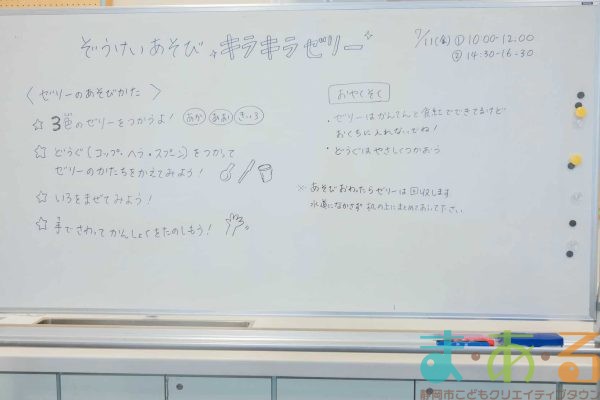 ぞうけいあそび キラキラゼリー
7/11(金) ① 10:00-12:00
② 14:30-16:30
〈ゼリーのあそびかた〉
☆ 3色のゼリーをつかうよ! あか あお きいろ
☆ どうぐ(コップ・ヘラ・スプーン)をつかって
ゼリーのかたちをかえてみよう!
☆ いろをまぜてみよう!
☆ 手でさわってかんしょくをたのしもう!
おやくそく
・ゼリーはかんてんと食紅でできてるけど
おくちに入れないでね!
・どうぐはやさしくつかおう
※ あそびおわったらゼリーは回収します
水道にながさず机の上にまとめておいて下さい
ま・あ・る
静岡市こどもクリエイティブタウン